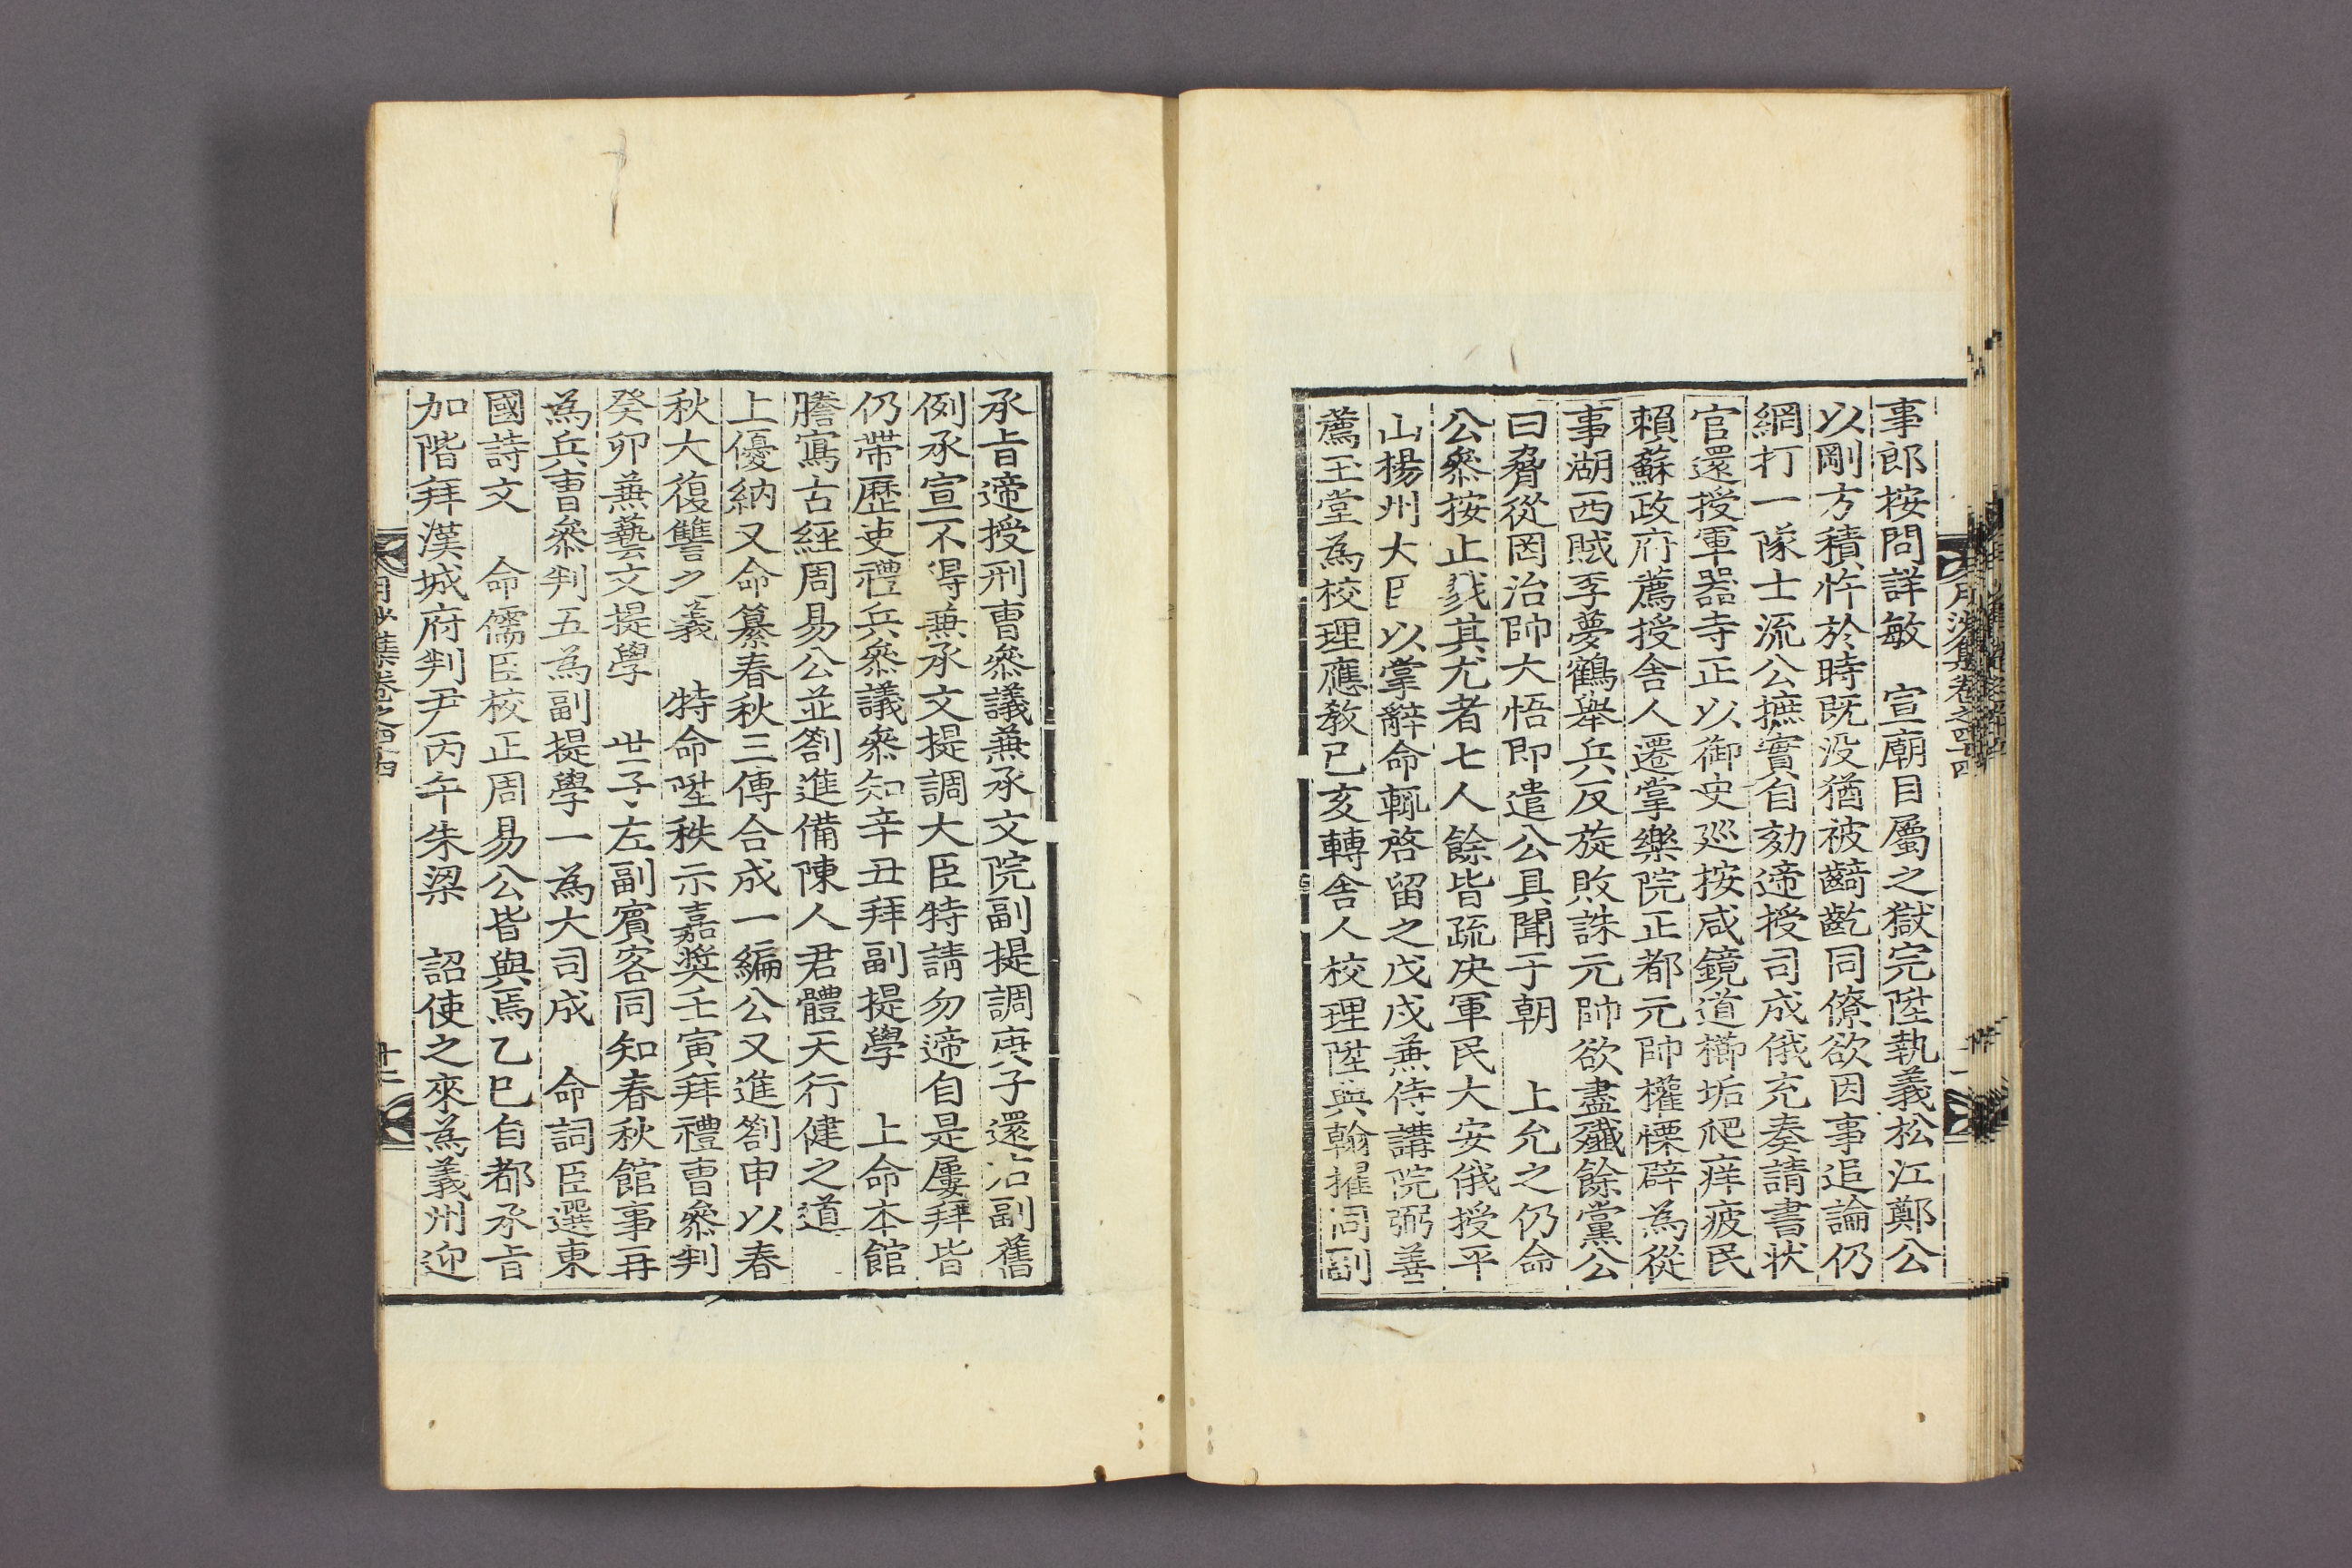 月沙集卷之四十四
事郎按問詳敏　宣廟目屬之獄完陞執義松江鄭公
以剛方積忤於時既没猶被齮齕同僚欲因事追論仍
網打一隊士流公摭實自劾遆授司成俄充奏請書状
官還授軍器寺正以御史廵按咸鏡道櫛垢爬痒疲民
頼蘇政府薦授舎人遷掌樂院正都元帥權慄辟為從
事湖西賊李夢鶴舉兵反旋敗誅元帥欲盡殱餘黨公
曰脅從罔治帥大悟即遣公具聞于朝　上允之仍命
公叅按止戮其尤者七人餘皆疏决軍民大安俄授平
山楊州大臣以掌辭命輒啓留之戊戌兼侍講院弼善
薦玉堂為校理應教己亥轉舎人校理陞典翰擢同副
承㫖遆授刑曹叅議兼承文院副提調庚子還沾副舊
例承宣不得兼承文提調大臣特請勿遆自是屢拜皆
仍帶歷吏禮兵叅議叅知辛丑拜副提學　上命本館
謄寫古經周易公並劄進備陳人君體天行健之道
上優納又命纂春秋三傳合成一編公又進劄申以春
秋大復讐之義　特命陞秩示嘉奬壬寅拜禮曹叅判
癸卯兼藝文提學　世子左副賓客同知春秋館事再
為兵曹叅判五為副提學一為大司成　命詞臣選東
國詩文　命儒臣校正周易公皆與焉乙巳自都承㫖
加階拜漢城府判尹丙午朱梁　詔使之來為義州迎
月沙集卷之四十四